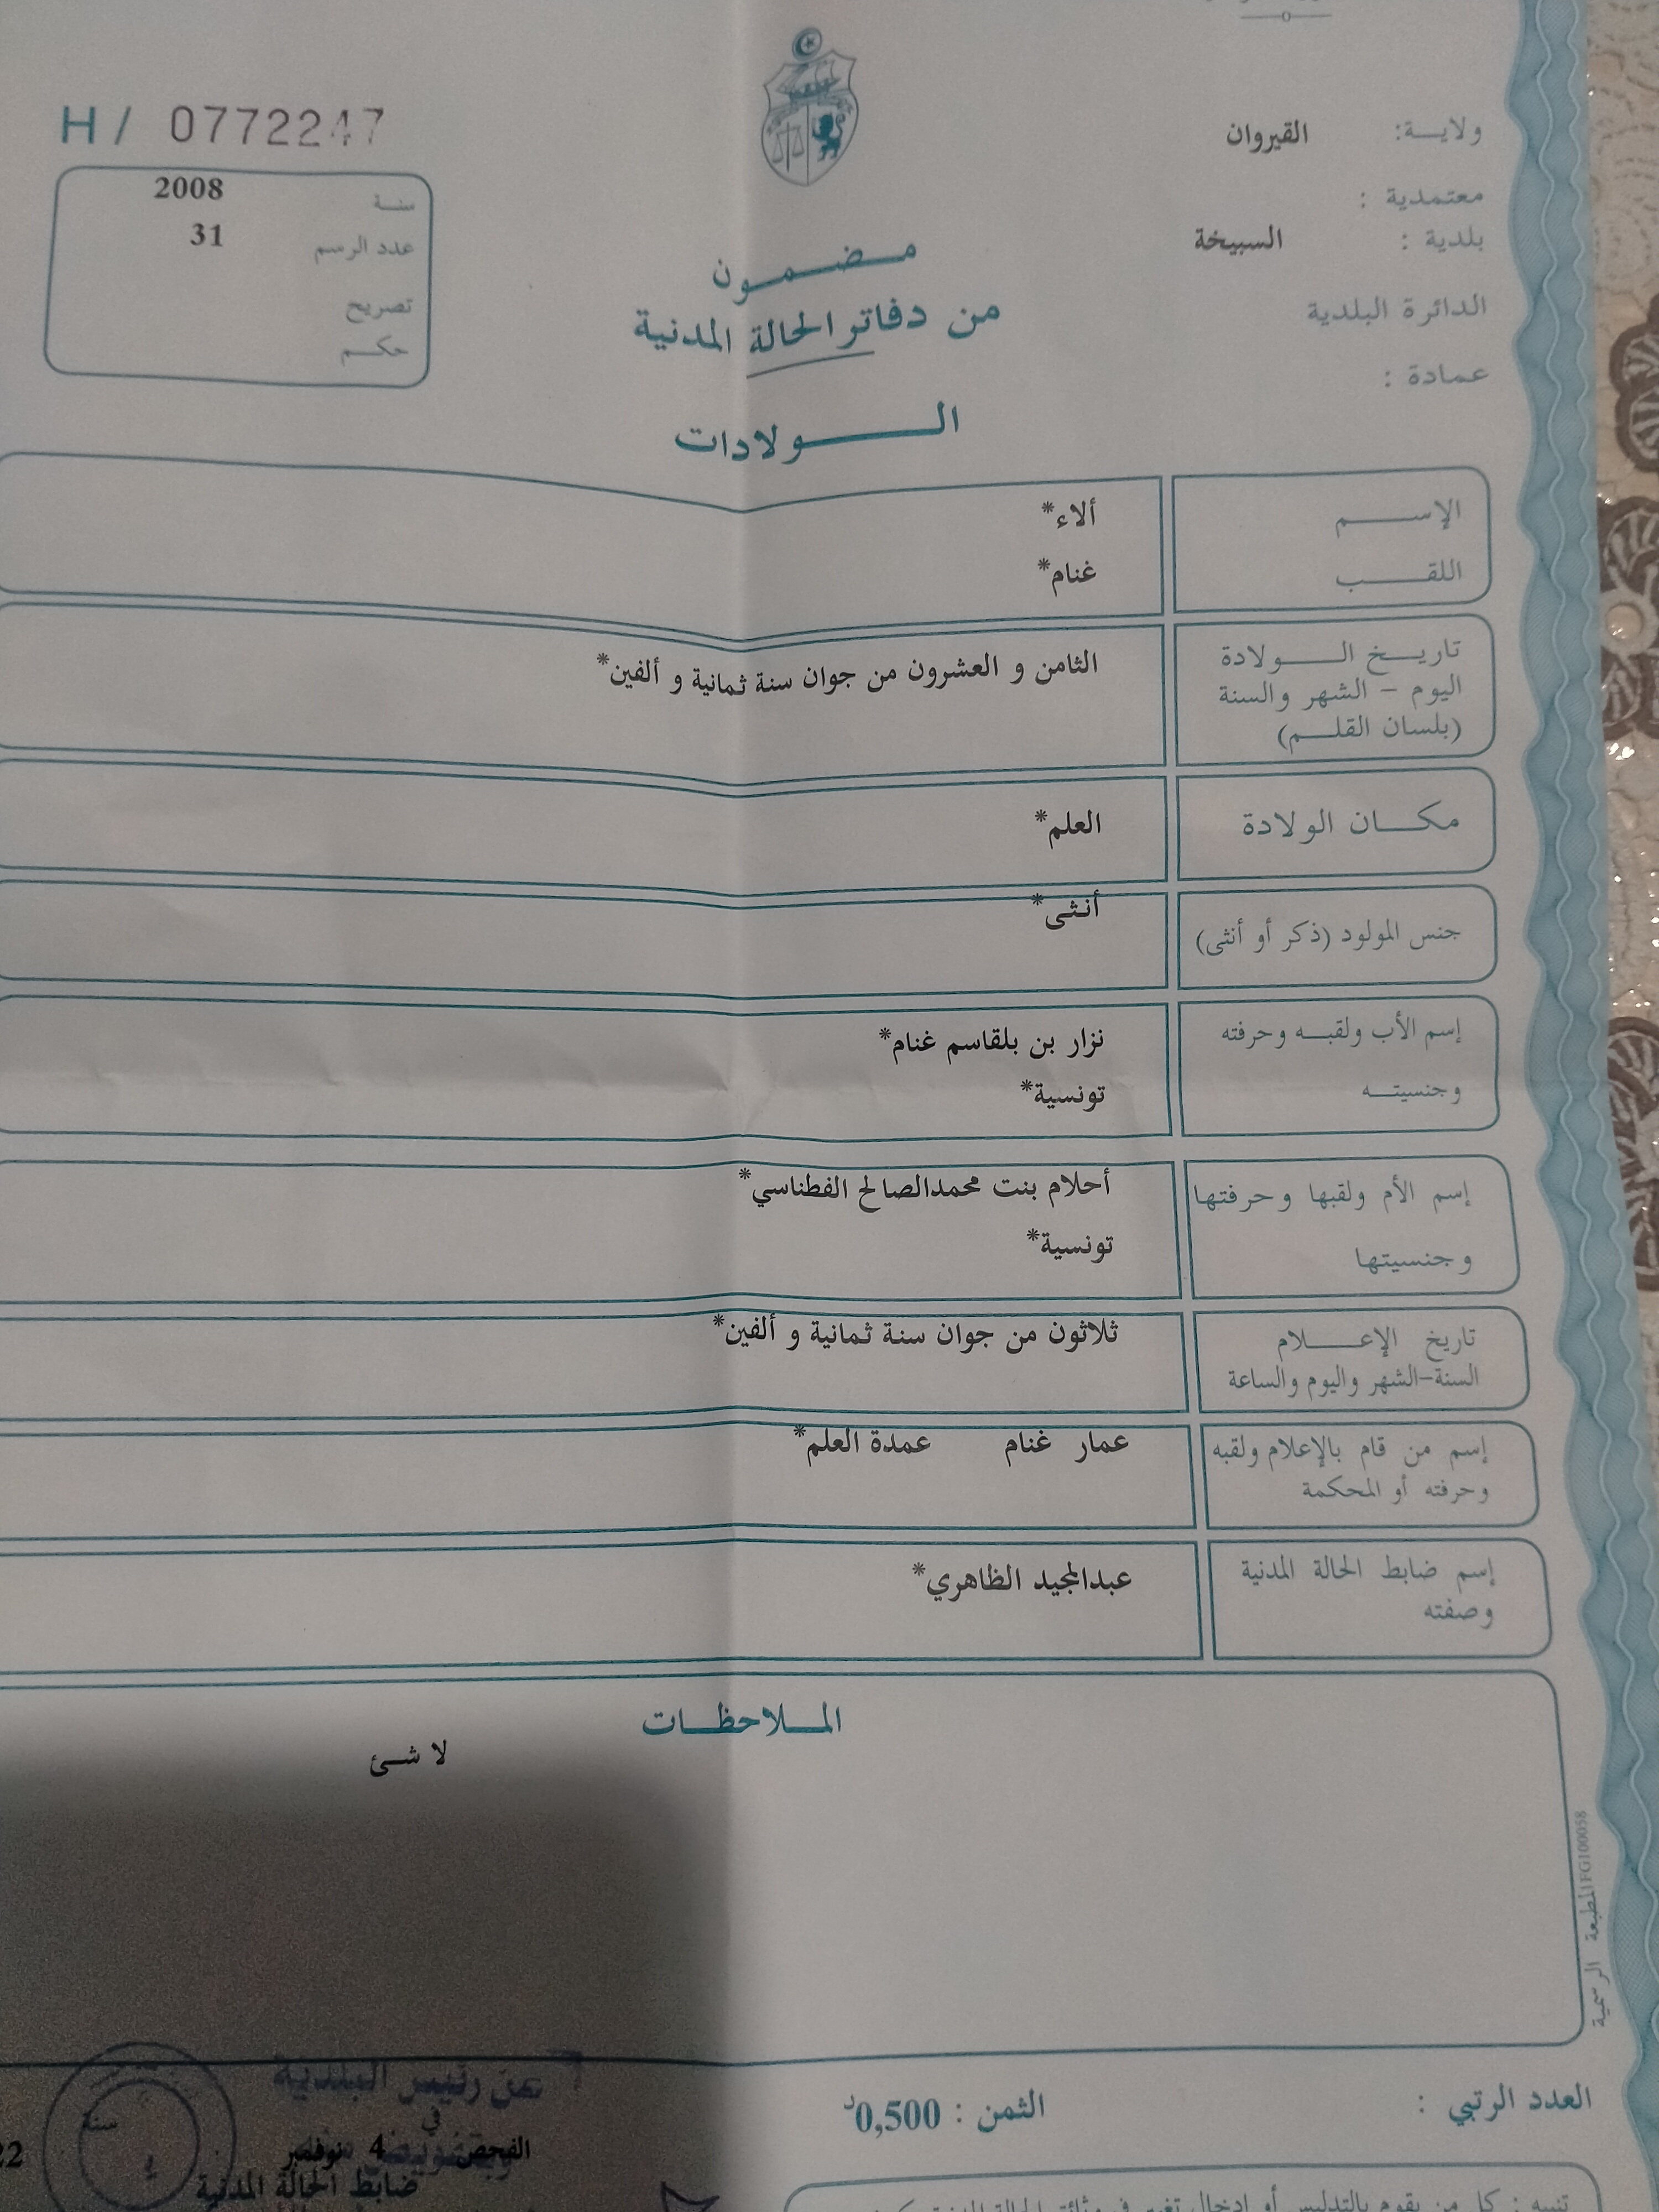 H / 0772247
سنة 2008
عدد الرسم 31
تصريح
حكم
ولاية: القيروان
معتمدية :
بلدية : السبيخة
الدائرة البلدية
عمادة :
مضمون
من دفاتر الحالة المدنية
الولادات
الإسم ألاء*
اللقب غنام*
تاريخ الولادة
اليوم - الشهر والسنة
(بلسان القلم)
الثامن و العشرون من جوان سنة ثمانية و ألفين*
مكان الولادة العلم*
جنس المولود (ذكر أو أنثى) أنثى*
إسم الأب ولقبه وحرفته نزار بن بلقاسم غنام*
وجنسيته تونسية*
إسم الأم ولقبها وحرفتها أحلام بنت محمدالصالح الفطناسي*
وجنسيتها تونسية*
تاريخ الإعلام ثلاثون من جوان سنة ثمانية و ألفين*
السنة-الشهر واليوم والساعة
إسم من قام بالإعلام ولقبه عمار غنام عمدة العلم*
وحرفته أو المحكمة
إسم ضابط الحالة المدنية عبدالمجيد الظاهري*
وصفته
الملاحظات
لا شئ
المطبعة الرسمية FG100058
العدد الرتبي :
الثمن : 0,500د
عن رئيس البلدية
في
الفحص 4 نوفمبر 22
سنة
ضابط الحالة المدنية
تنبيه : كل من يقوم بالتدليس أو إدخال تغيير في وثائق الحالة المدنية